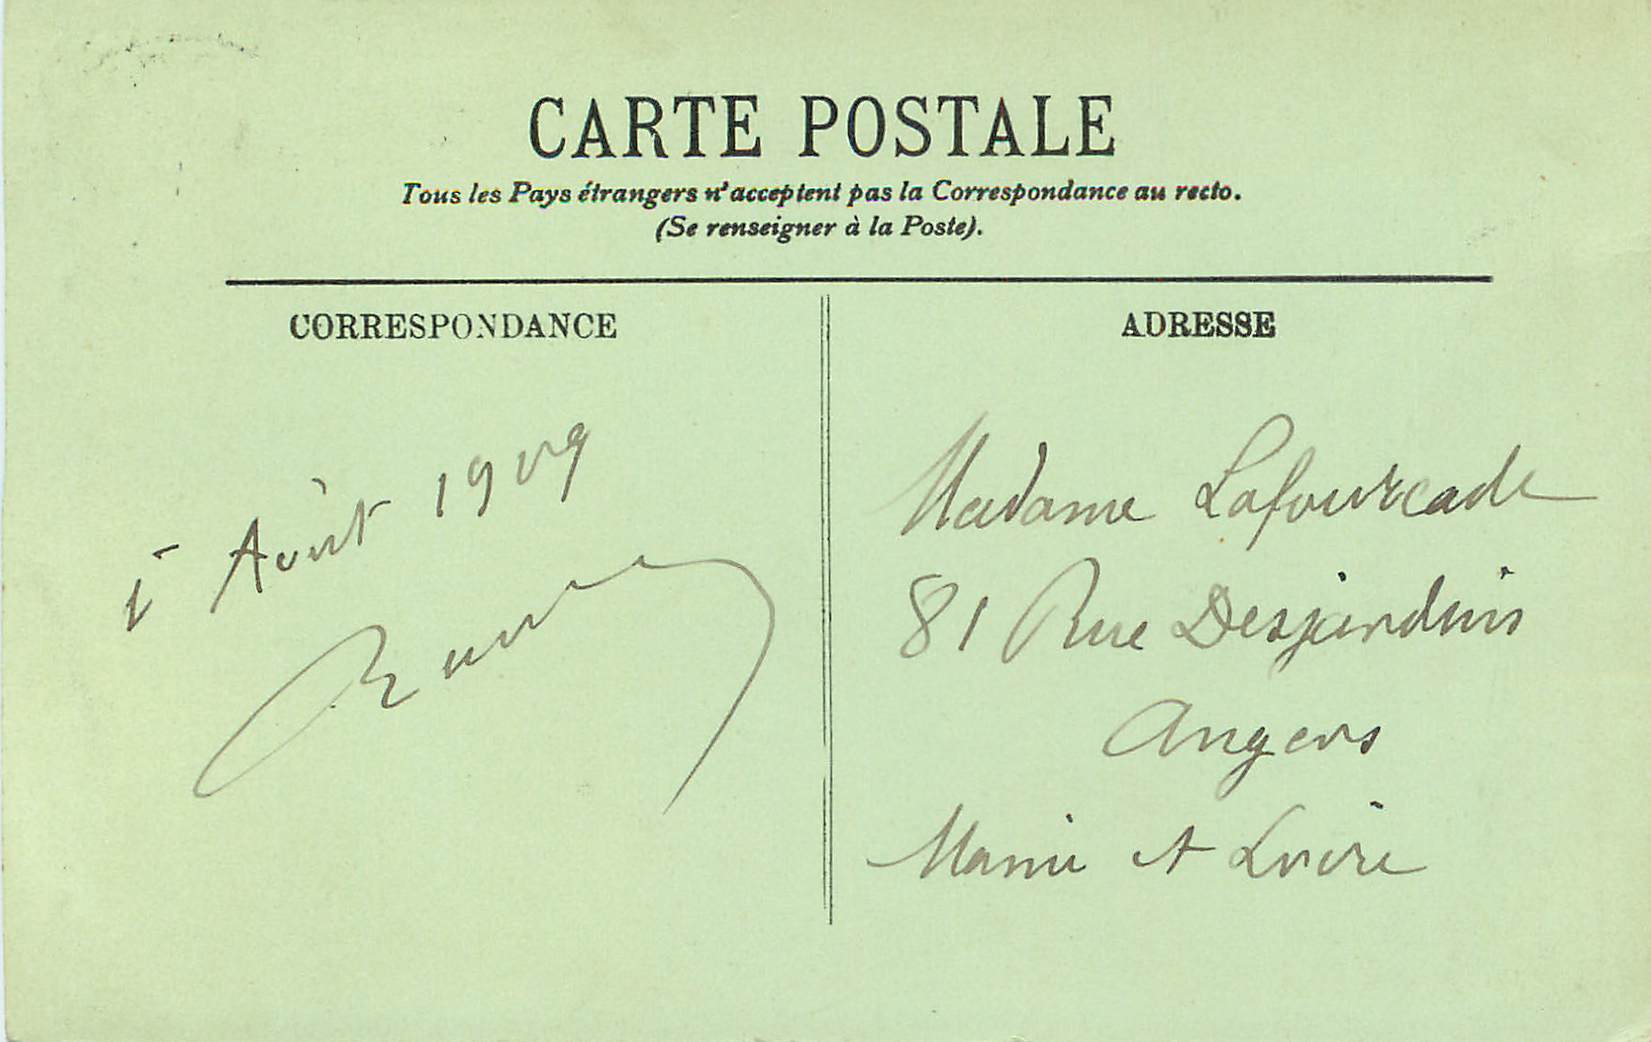 CARTE POSTALE
Tous les Pays étrangers n'acceptent pas la Correspondance au recto.
(Se renseigner à la Poste).
CORRESPONDANCE
ADRESSE
Août 1909
Madame Lafourcade
81 Rue Desjardins
Angers
Maine et Loire